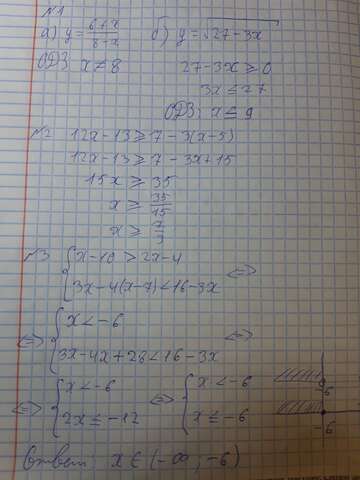 №1
а) y = 6+x / 8-x  б) y = √27-3x
ОДЗ x ≠ 8  27-3x ≥ 0
3x ≤ 27
ОДЗ: x ≤ 9
№2 12x-13 ≥ 7-3(x-5)
12x-13 ≥ 7-3x+15
15x ≥ 35
x ≥ 35/15
x ≥ 7/3
№3 { x-10 > 2x-4
3x-4(x-7) < 16-3x <=>
<=> { x < -6
3x-4x+28 < 16-3x <=>
<=> { x < -6
2x ≤ -12 <=> { x < -6
x ≤ -6
-6
Ответ: x ∈ (-∞; -6)